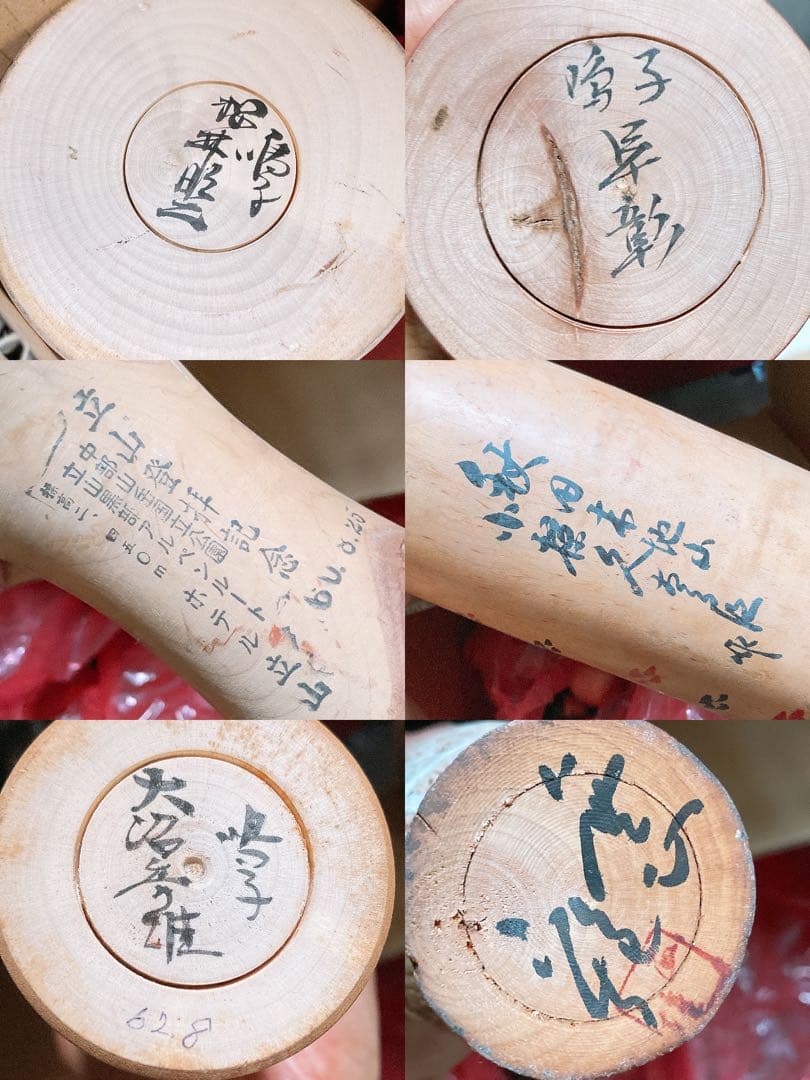 鳴子
桜井昭二
鳴子
彰
立山登拝記念
中部山岳国立公園
立山黒部アルペンルート
標高二、四五〇m ホテル立山
秋田木地山
小椋久太郎作
鳴子
大沼秀雄
62.8